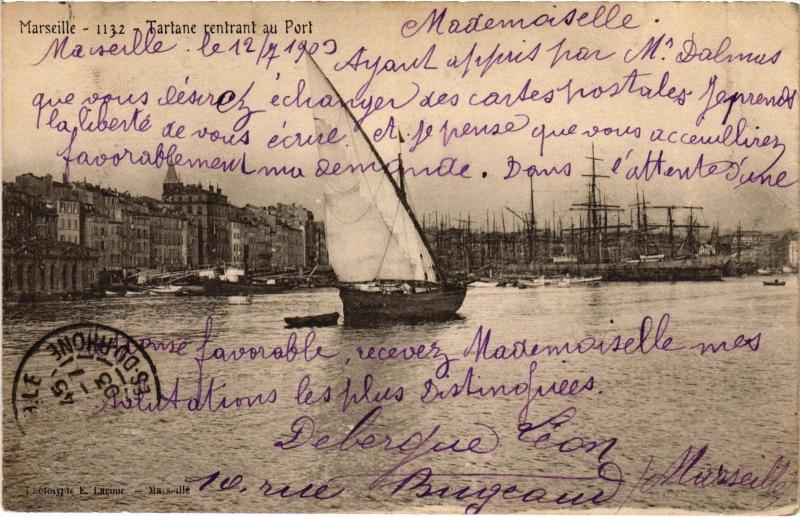 Marseille - 1132 - Tartane rentrant au Port
Mademoiselle.
Marseille. le 12/7 1903
Ayant appris par Mr Dalmas
que vous désirez échanger des cartes postales Je prends
la liberté de vous écrire et je pense que vous acceuillirez
favorablement ma demande. Dans l'attente d'une
réponse favorable, recevez Mademoiselle mes
salutations les plus Distinguées.
Debergue Léon
10. rue Bugeaud
Marseille
BES-DU-RHONE
Phototypie E. Lacour. - Marseille